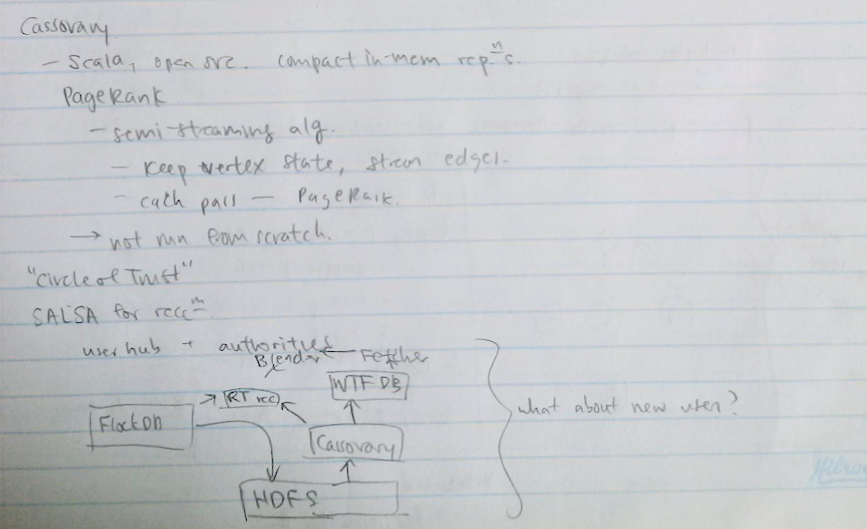 Cassovary
- Scala, open src. compact in-mem repⁿs.
PageRank
- semi-streaming alg.
- keep vertex state, stream edges.
- each pass - PageRank.
→ not run from scratch.
"Circle of Trust"
SALSA for reccᵐ
user hub + authorities
Blender ← Fetcher
WTF DB
RT rec
FlockDB
what about new user?
Cassovary
HDFS